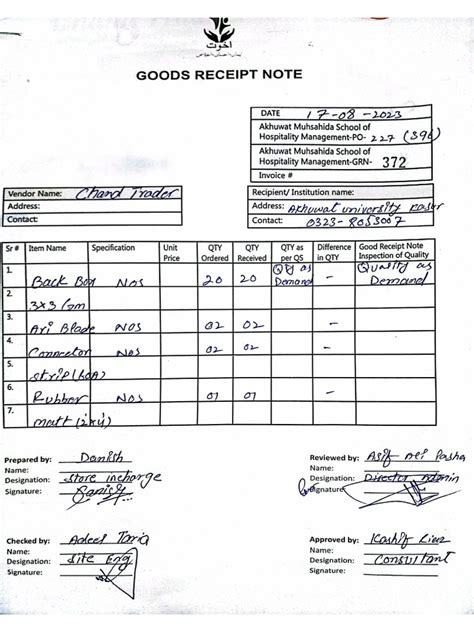 اخوت
GOODS RECEIPT NOTE
DATE 17-08-2023
Akhuwat Muhsahida School of
Hospitality Management-PO- 227 (396)
Akhuwat Muhsahida School of
Hospitality Management-GRN- 372
Invoice #
Vendor Name: Chand Trader
Address:
Contact:
Recipient/ Institution name:
Address: Akhuwat university Kasur
Contact: 0323-8053007
Sr # Item Name Specification Unit Price QTY Ordered QTY Received QTY as per QS Difference in QTY Good Receipt Note Inspection of Quality
1. Back Box NOS 20 20 as Demand - Quality as Demand
2. 3x3
3. Ari Blade NOS 02 02 -
4. Connector NOS 02 02 -
5. Strip
6. Rubber NOS 01 01 -
7. matt
Prepared by: Danish
Name:
Designation: Store incharge
Signature: Danish
Reviewed by: Asif Pasha
Name:
Designation: Director Admin
Signature:
Checked by: Adeel
Name:
Designation: Site Eng
Signature:
Approved by: Kashif
Name:
Designation: Consultant
Signature: